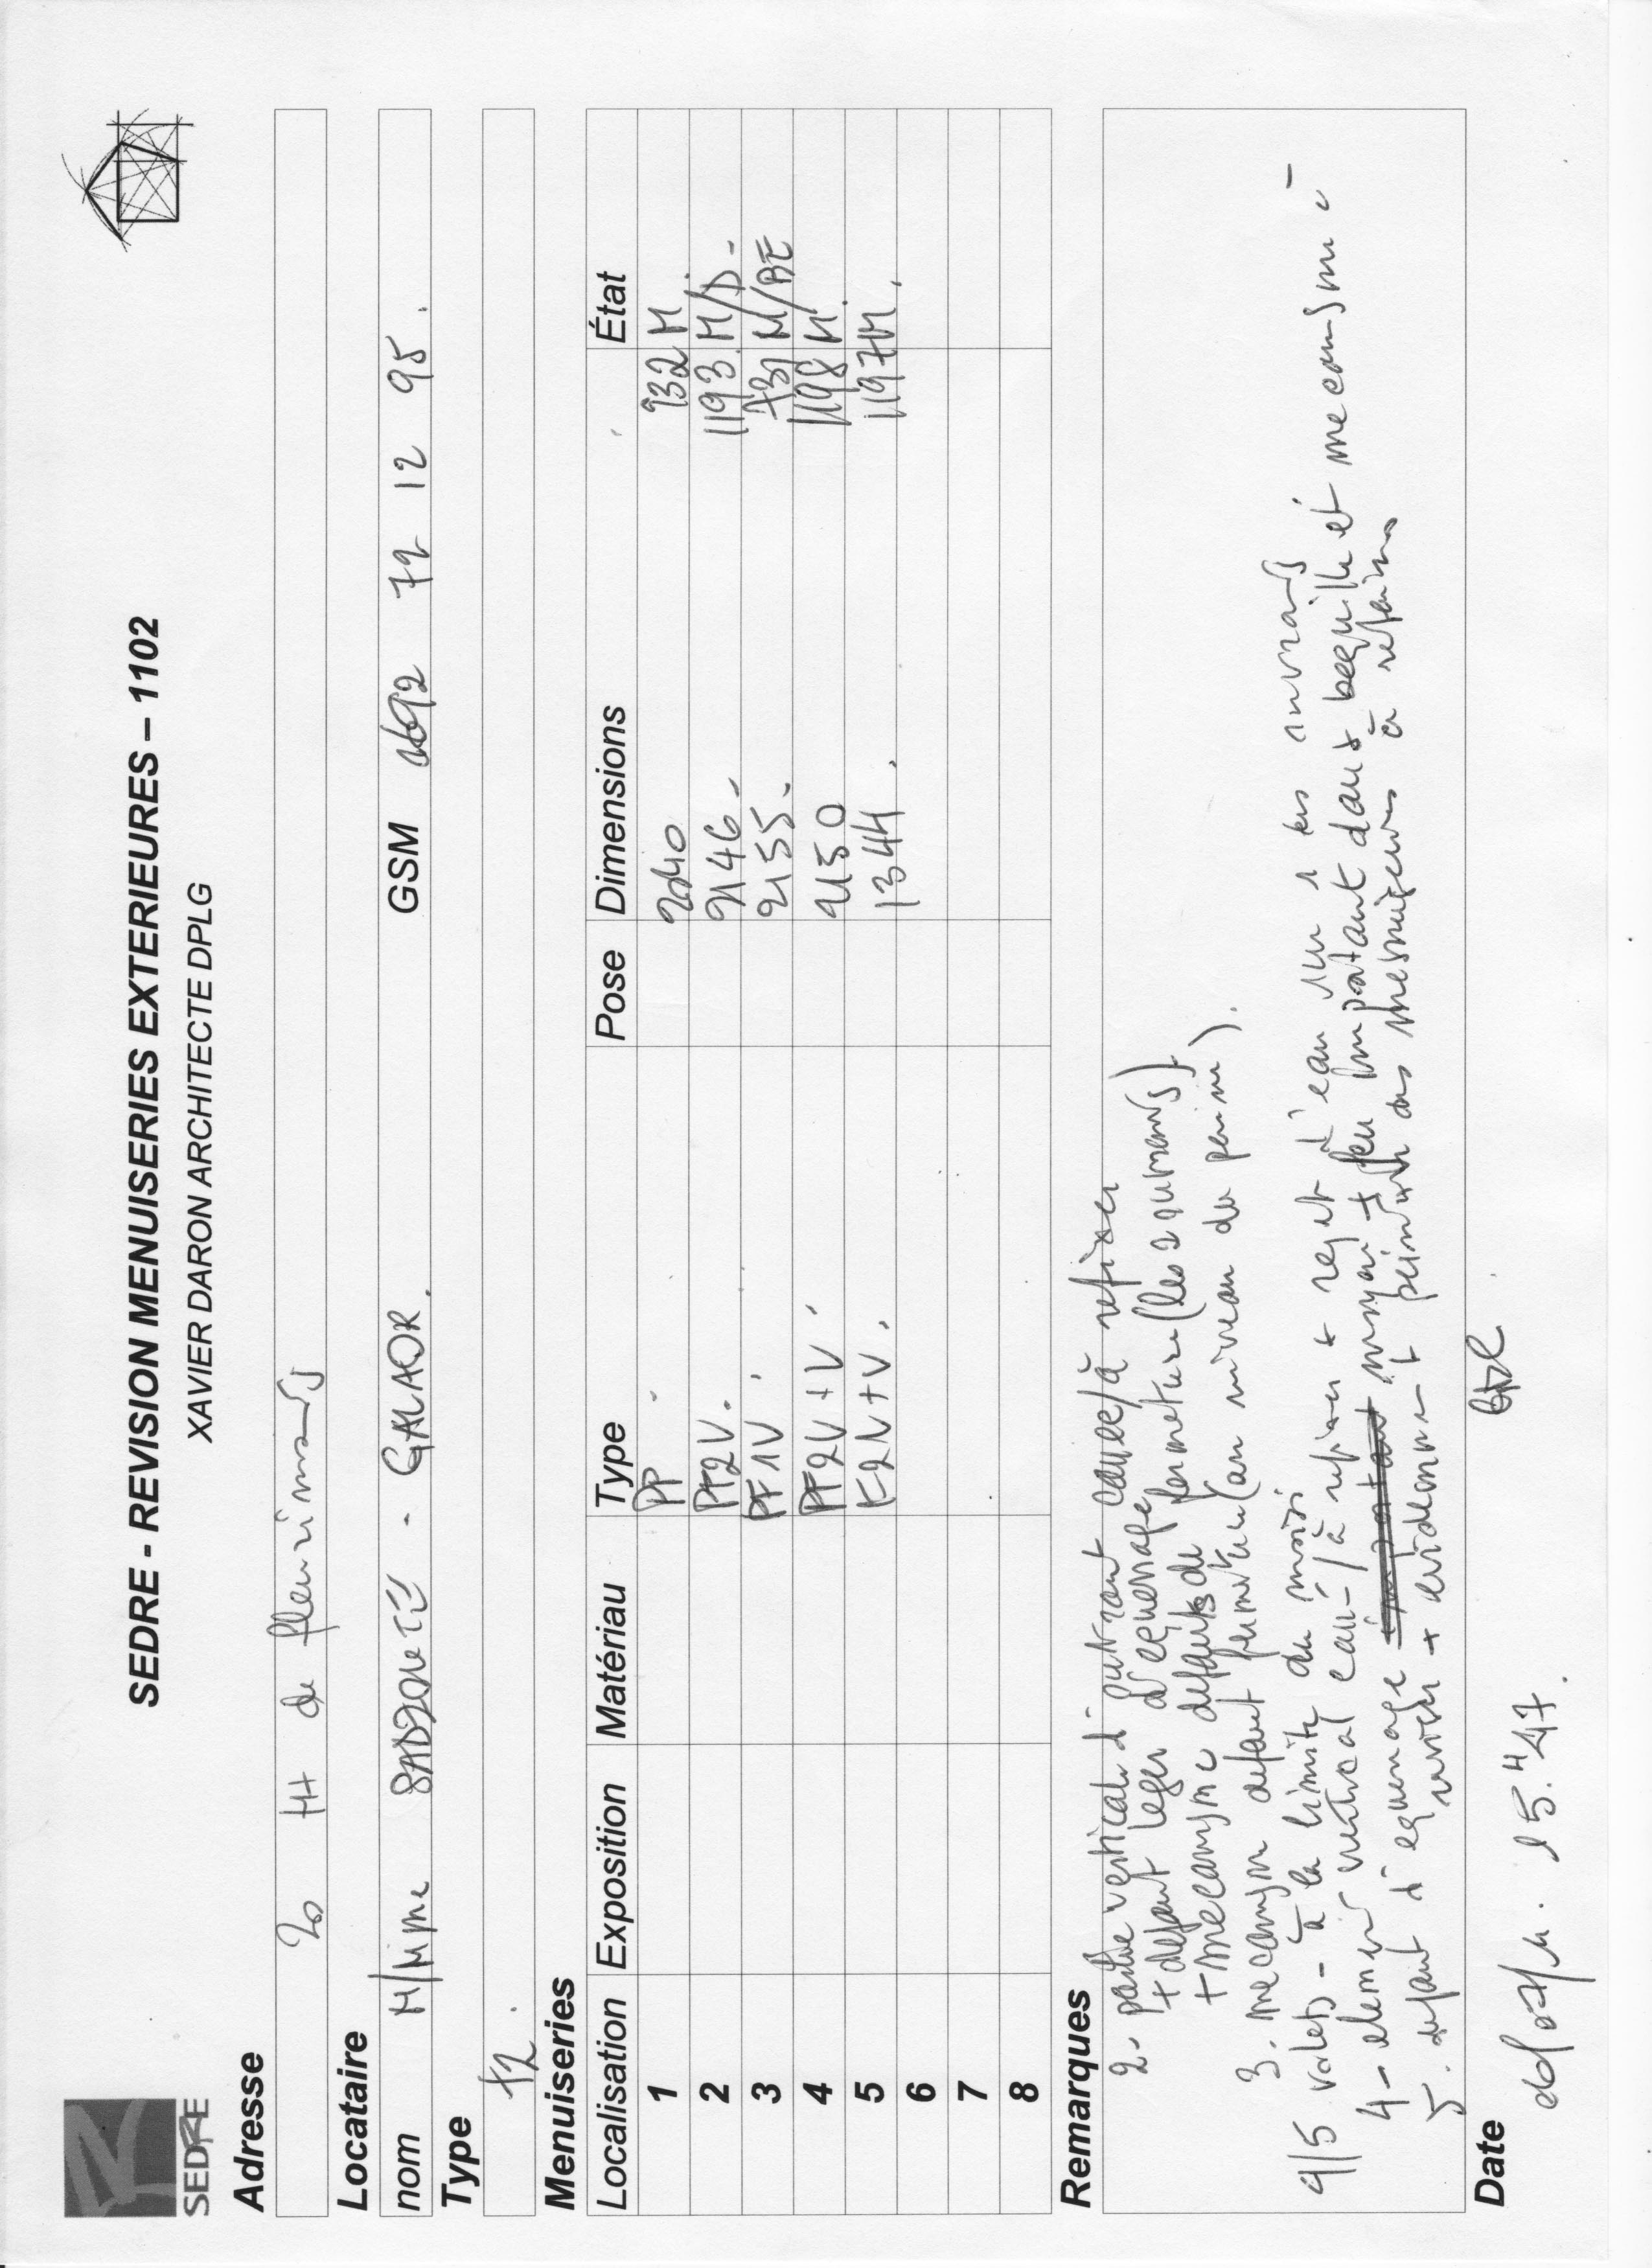 SEDRE
SEDRE - REVISION MENUISERIES EXTERIEURES – 1102
XAVIER DARON ARCHITECTE DPLG
Adresse
20 Ht de fleurimard
Locataire
nom M/Mme - GALAOR. GSM 0692 72 12 95.
Type
T2.
Menuiseries
Localisation Exposition Matériau Type Pose Dimensions État
1 PP 2040 932 M
2 PF2V. 2146 - 1193 M/D -
3 PF1V. 2155. 731 M/BE
4 PF2V+V. 2150 1198 M.
5 F2V+V. 1344. 1197 M.
6
7
8
Remarques
2- partie verticale d'ouvrant cassée/à refixer
+ defaut leger d'equerrage
+ mecanisme defauts de fermeture (les 2 ouvrants).
3. mecanisme defaut fermeture (au niveau du penne).
4/5 volets - à la limite du moisi
4 - element vertical /à refixer + rejet d'eau sur les ouvrants
5. defaut d'equerrage moyen + jeu important dans bequille et mecanisme à
reviser + evidemment peinture des menuiseries à refaire
Date
15.H47.